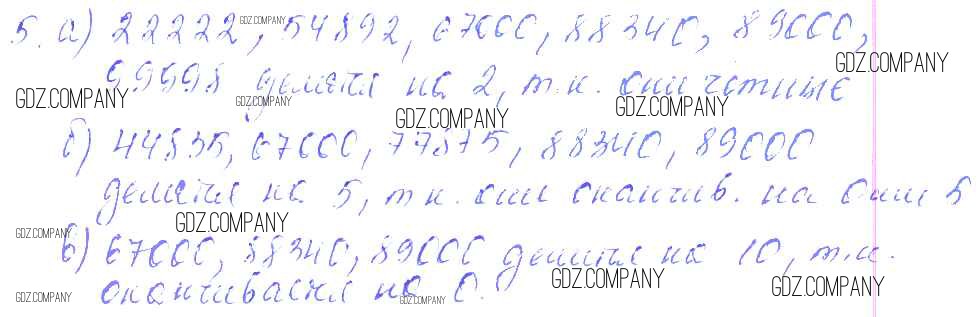 5. а) 22222, 54892, 67000, 88340, 89000,
99998 делятся на 2, т.к. они чётные
б) 44835, 67000, 77875, 88340, 89000
делятся на 5, т.к. они оканчив. на 0 или 5
в) 67000, 88340, 89000 делятся на 10, т.к.
оканчиваются на 0.
GDZ.COMPANY
GDZ.COMPANY
GDZ.COMPANY
GDZ.COMPANY
GDZ.COMPANY
GDZ.COMPANY
GDZ.COMPANY
GDZ.COMPANY
GDZ.COMPANY
GDZ.COMPANY
GDZ.COMPANY
GDZ.COMPANY